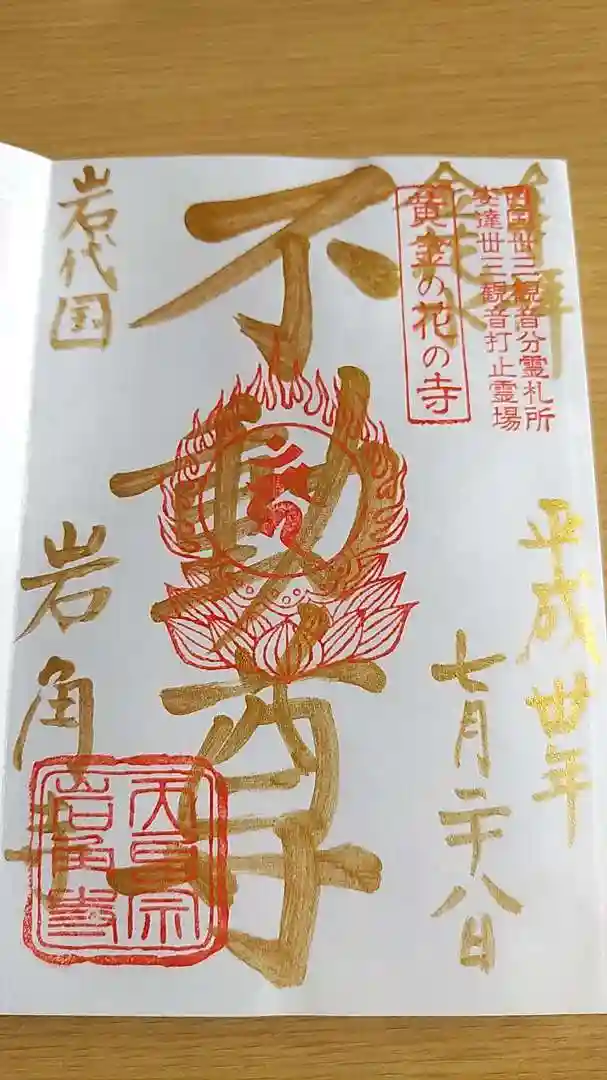 奉拝
西国卅三観音分霊札所
安達卅三観音打止霊場
黄金の花の寺
平成卅年
七月二十八日
不動尊
岩代国
岩角寺
天台宗
岩角寺